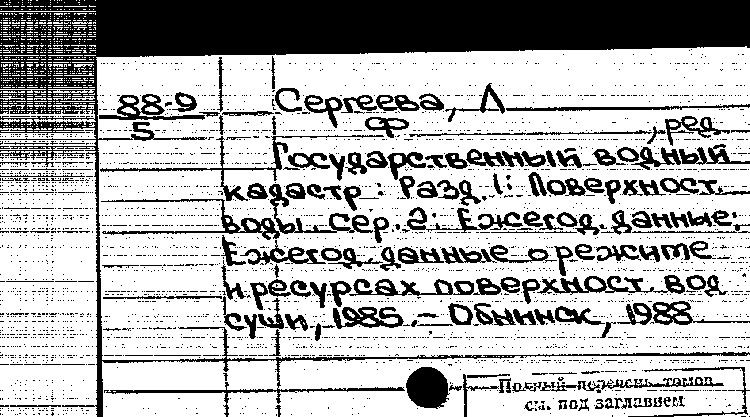 88-9
5
Сергеева, Л
Ф
, ред
Государственный водный
кадастр: Разд. 1: Поверхност.
воды. Сер. 2: Ежегод. данные:
Ежегод. данные о режиме
и ресурсах поверхност. вод
суши, 1985. – Обнинск, 1988
Полный перечень томов
см. под заглавием